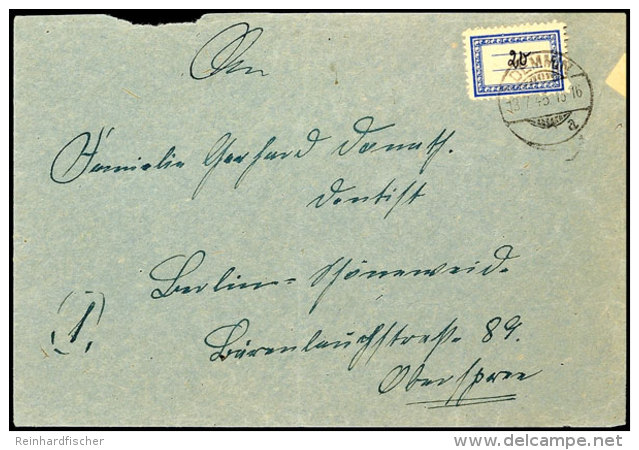 An
20
DEMMIN
13.7.45.15-16
a
Familie Gerhard Donath.
Dentist
Berlin-Schöneweid.
(1)
Bärenlauchstraße 89.
Oberspree
Reinhardfischer
delcampe.net